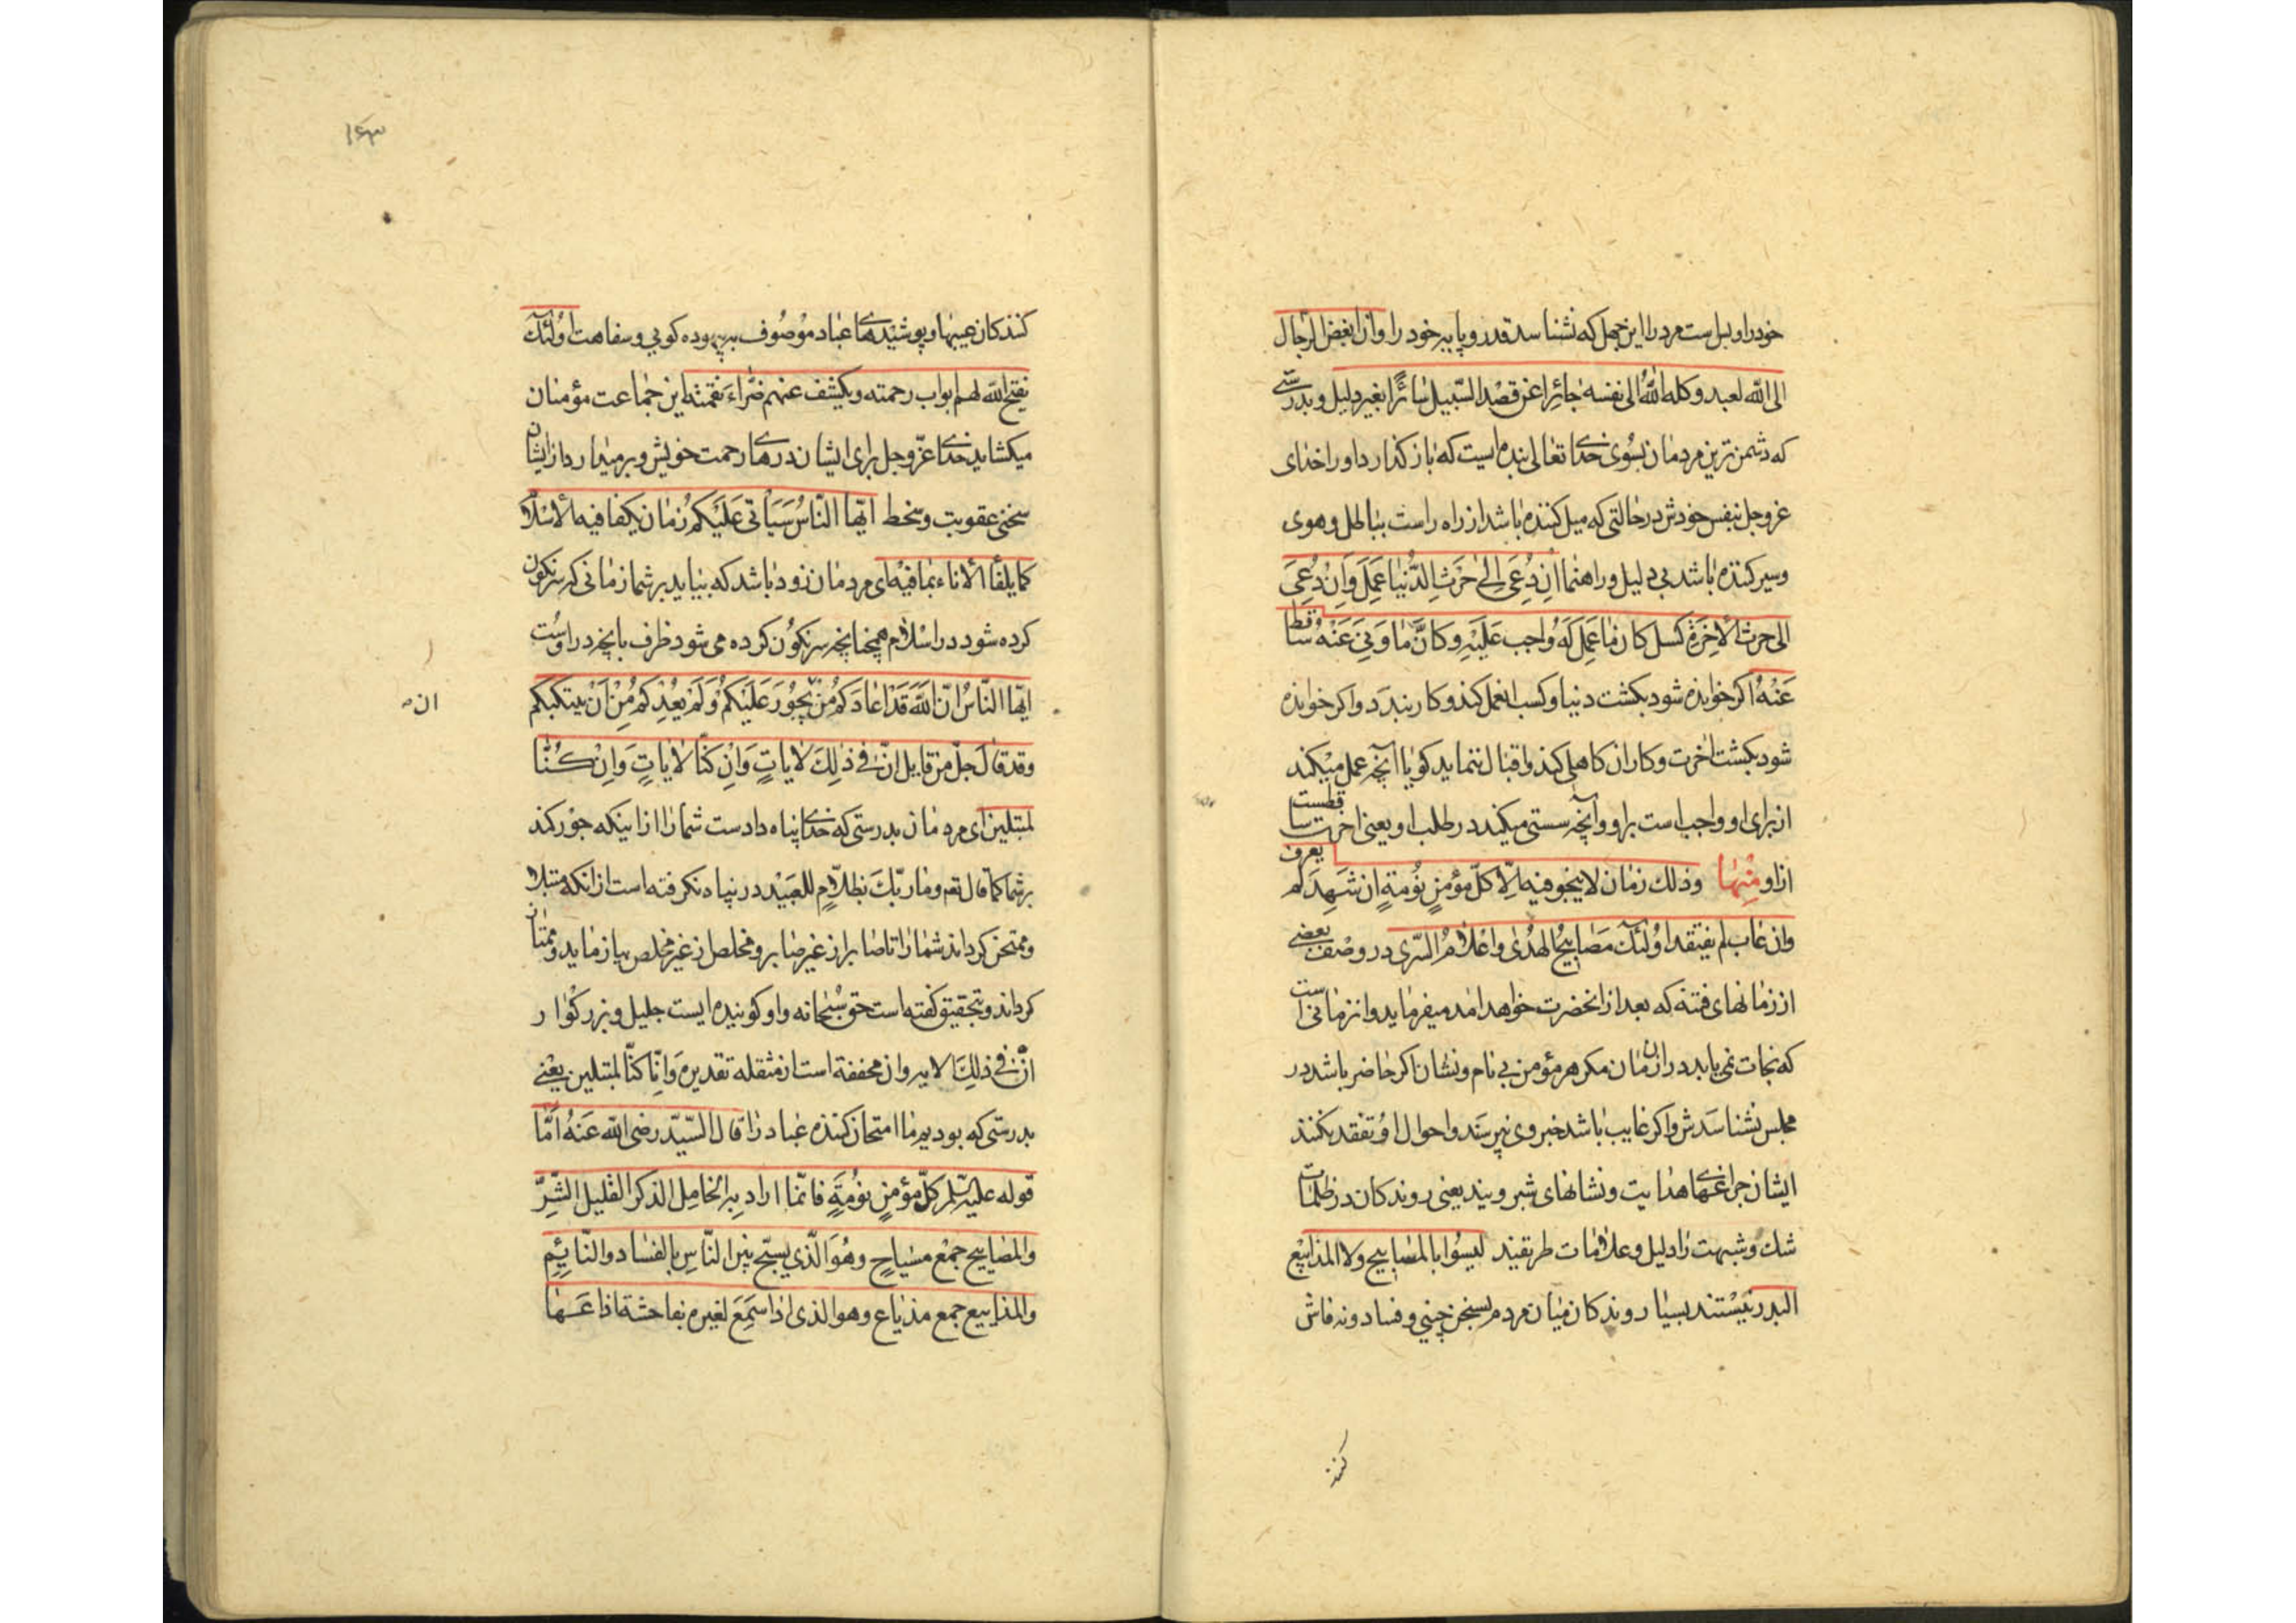 خود را و بس است مرد را این جهل که نشناسد قدر و پایه خود را وان ابغض الرجال
الی الله لعبد وکله الله الی نفسه جائرا عن قصد السبیل سائرا بغیر دلیل و بدرستی
که دشمن ترین مردمان بسوی خدای تعالی بنده ایست که باز گذارد او را خدای
عزوجل بنفس خودش در حالتی که میل کننده باشد از راه راست بباطل و هوی
و سیر کننده باشد بی دلیل و راهنما ان دُعِیَ اِلی حَرثِ الدُّنیا عَمِلَ وَاِن دُعِیَ
الی حرث الاخِرَةِ کسل کان ما عَمِلَ لَهُ واجب عَلَیْهِ وکانَّ ما وَنی عَنْهُ ساقط
عَنْهُ اکر خوانده شود بکشت دنیا و کسب ان عمل کند و کار بندد و اکر خوانده
شود بکشت اخرت و کار ان کاهلی کند و اقبال ننماید کویا آنچه عمل میکند
از برای او واجب است بر او و آنچه سستی میکند در طلب او یعنی اخرت ساقطست
از او منها وذلک زمان لا ینجو فیه الّا کلّ مؤمنٍ نُوَمةٍ ان شَهِدَ لم یعرف
وان غاب لم یفتقد اولئک مَصابیحُ الهُدی واعلامُ السّری در وصف بعضی
از زمانهای فتنه که بعد از انحضرت خواهد امد میفرماید و ان زمانی است
که نجات نمی یابد در ان زمان مکر هر مؤمن بی نام و نشان اکر حاضر باشد در
مجلس نشناسدش و اکر غایب باشد خبر وی نپرسند و احوال او تفقد نکنند
ایشان چراغهای هدایت و نشانهای شبرویند یعنی روندکان در ظلمات
شک و شبهت را دلیل و علامات طریقیند لیسُوا بالمصابیح ولا المذاییع
البذر نیستند بسیار روندکان میان مردم بسخن چینی و فساد و نه فاش
کنند
۱۶۳
کنندکان عیبها و پوشیدهای عباد موصوف ببیهوده کویی و سفاهت اولئک
یفتح الله لهم ابواب رحمته ویکشف عنهم ضراء نقمته این جماعت مؤمنان
میکشاید خدای عزوجل برای ایشان درهای رحمت خویش و برمیدارد از ایشان
سختی عقوبت و سخط ایها النّاسُ سَیَأتی عَلَیکُم زمان یکفا فیه الاسلام
کما یکفأ الاناء بما فیه ای مردمان زود باشد که بیاید بر شما زمانی که سرنکون
کرده شود در او اسلام همچنانچه سرنکون کرده می شود ظرف بانچه در اوست
ایها النّاسُ انّ اللهَ قَد اعاذکم مِن یَجُورَ عَلَیکُم وَلَم یُعِذکم مِن اَن یبتلیکم
ان
وقد قالَ جلّ من قایل انّ فی ذلِکَ لَایاتٍ وَاِن کنا لَایاتٍ وَاِن کُنّا
لمبتلین ای مردمان بدرستی که خدای پناه دادست شما را از اینکه جور کند
بر شما کما قال تعم وما ربّک بظلّامٍ للعبید در پناه نکرفته است از انکه مبتلا
و ممتحن کرداند شما را تا صابر از غیر صابر و مخلص از غیر مخلص بیازماید و ممتاز
کرداند و بتحقیق کفته است حق سبحانه و او کوینده ایست جلیل و بزرکوار
انّ فی ذلِکَ الایه و ان مخففه است از مثقله تقدیره وَاِنّا کنّا لمبتلین یعنی
بدرستی که بودیم ما امتحان کننده عباد را قال السّیّد رضی الله عَنهُ اَمّا
قوله علیه السلم کلّ مؤمنٍ نُوَمَةٍ فانّما اراد بِه الخامِل الذکر القلیل الشّرِّ
والمصابیح جمع مسیاحٍ وهُوَ الّذی یسیّح بین النّاسِ بالفساد والنّمائِمِ
والمذاییع جمع مذیاع وهو الذی اذا سَمِعَ لغیره بفاحشة اذاعَها